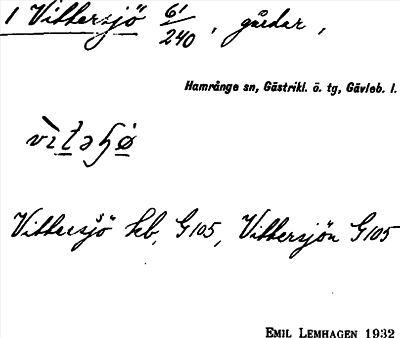 1 Vittersjö 6/240, gårdar,
Hamrånge sn, Gästrikl. ö. tg, Gävleb. l.
Vittersjö leb, G105, Vittersjön G105
EMIL LEMHAGEN 1932